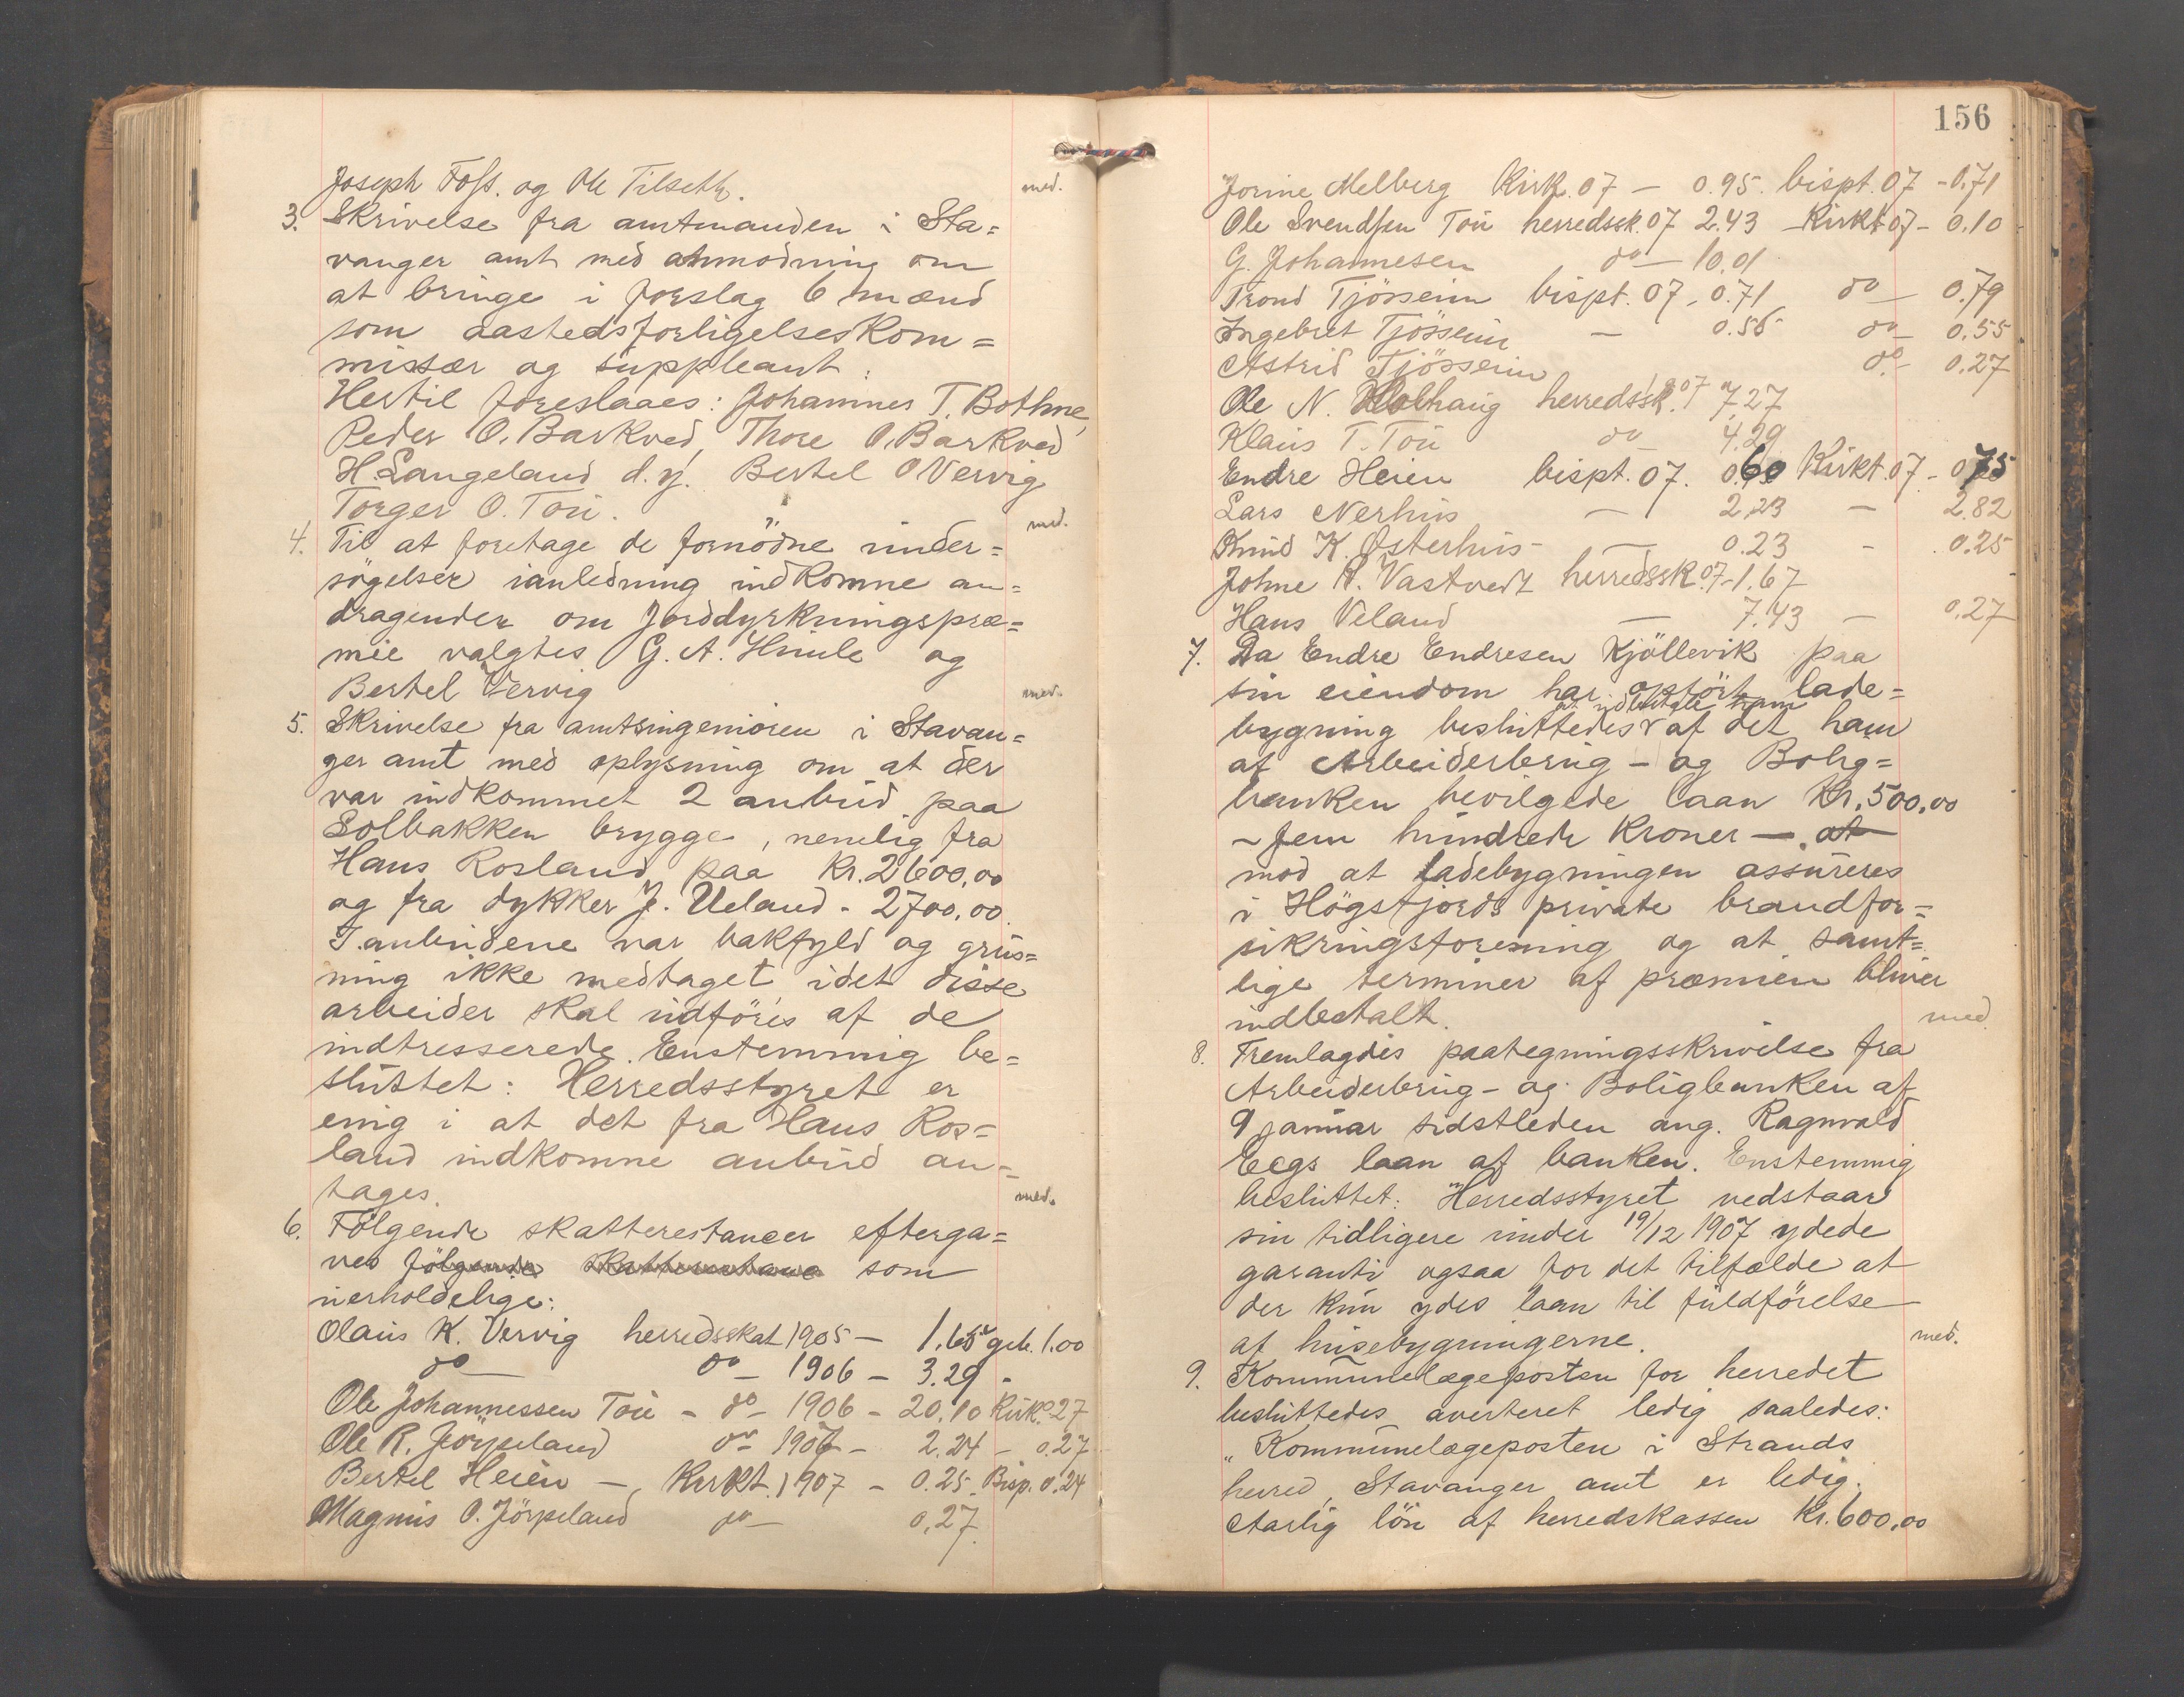 Joseph Foss. og Ole Tilseth.
med.
3. Skrivelse fra amtmanden i Sta=
vanger amt med anmodning om
at bringe i forslag 6 mænd
som aastedsforligelseskom=
missær og suppleant.
Hertil foreslaaes: Johannes T. Bothne,
Peder O. Barkved, Thore O. Barkved
H. Langeland d.y. Bertel O Vervig
Torger O. Tou.
med.
4. Til at foretage de fornödne under=
sögelser ianledning indkomne an=
dragender om Jorddyrkningspræ=
mie valgtes G. A. Hiule og
Bertel Vervig
med.
5. Skrivelse fra amtsingeniören i Stavan=
ger amt med oplysning om at der
var indkommet 2 anbud paa
Solbakken brygge, nemlig fra
Hans Rosland paa Kr. 2600,00
og fra dykker J. Ueland - 2700,00.
I anbudene var bakfyld og grus=
ning ikke medtaget idet disse
arbeider skal udföres af de
indtresserede. Enstemmig be=
sluttet: Herredsstyret er
enig i at det fra Hans Ros=
land indkomne anbud an=
tages.
med.
6. Fölgende skatterestancer efterga=
ves fölgende skatterestance som
uerholdelige:
Olaus K. Vervig herredsskat 1905 - 1.65 geb. 1.00
do do - 1906 - 3.29 -
Ole Johannessen Tou - do - 1906 - 20,10 Kirk. 27
Ole R. Jörpeland do 1907 - 2.24 - 0.27
Bertel Heien - Kirkt. 1907 - 0.25. Bisp. 0.24
Magnus O. Jörpeland do - 0,27.
156
Jorine Melberg Kirk. 07 - 0.95. bispt. 07 - 0.71
Ole Svendsen Tou herredssk. 07 2.43 - Kirkt 07 - 0.10
G. Johannesen do - 10.01
Trond Tjösseim bispt. 07 - 0.71 do - 0.79
Ingebret Tjösseim - 0.56 do - 0.55
Astrid Tjösseim do - 0.27
Ole N. Holhaug herredssk. 1907 7,27
Klaus T. Tou do 4.29
Endre Heien bispt. 07. 0.60 Kirkt. 07 - 0.75
Lars Nerhus - 2.23 - 2.82
Knud K. Østerhus - - 0.23 - 0.25
Johne A. Vastvedt herredssk. 07 - 1.67
Hans Veland - 7.43 - 0.27
7. Da Endre Endresen Kjöllevik paa
sin eiendom har opfört lade=
at udbetale ham
bygning besluttedes af det ham
af Arbeiderbrug- og Bolig=
banken bevilgede laan Kr. 500,00
- fem hundrede Kroner - at
mod at ladebygningen assureres
i Högsfjords private brandfor=
sikringsforening og at samt=
lige terminer af præmien bliver
indbetalt.
med
8. Fremlagdes paategningsskrivelse fra
Arbeiderbrug- og Boligbanken af
9 januar sidstleden ang. Ragnvald
Eegs laan af banken. Enstemmig
besluttet: Herredsstyret vedstaar
sin tidligere under 19/12 1907 ydede
garanti ogsaa for det tilfælde at
der kun ydes laan til fuldförelse
af husebygningerne.
med.
9. Kommunelægeposten for herredet
besluttedes averteret ledig saaledes:
"Kommunelægeposten i Strands
herred, Stavanger amt er ledig.
Aarlig lön af herredskassen Kr. 600,00